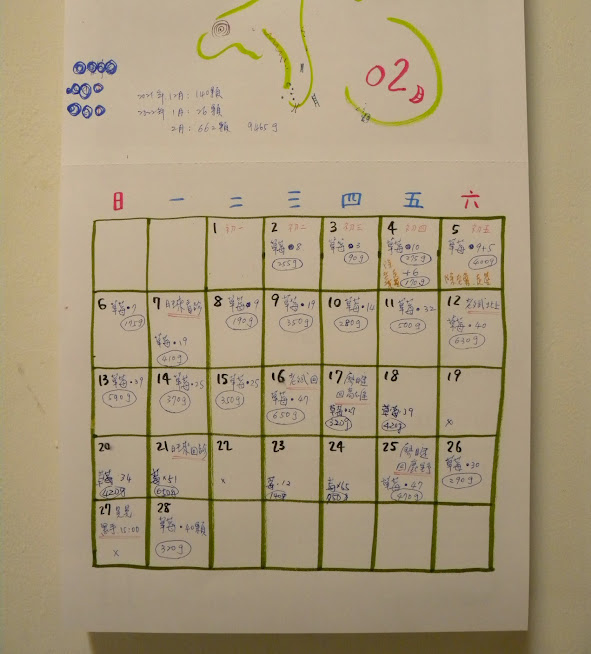 02
2021年12月：140顆
2022年1月：26顆
2月：662顆 9465g
日 一 二 三 四 五 六
1 初一
2 初二
草莓•8
255g
3 初三
草莓•3
90g
4 初四
草莓•10
275g
+6
170g
5 初五
草莓•9+5
600g
6 草莓•7
195g
7
草莓•19
410g
8 草莓•9
190g
9 草莓•19
350g
10 草莓•14
280g
11 草莓•32
500g
12
草莓•40
630g
13 草莓•39
590g
14 草莓•25
370g
15 草莓•25
350g
16
草莓•47
650g
17
草莓•27
320g
18
草莓•39
420g
19
x
20
草莓•34
420g
21
莓×51
650g
22
x
23
莓•12
140g
24
莓×65
750g
25
草莓•47
470g
26
草莓•30
290g
27
15:00
x
28
草莓•40顆
320g